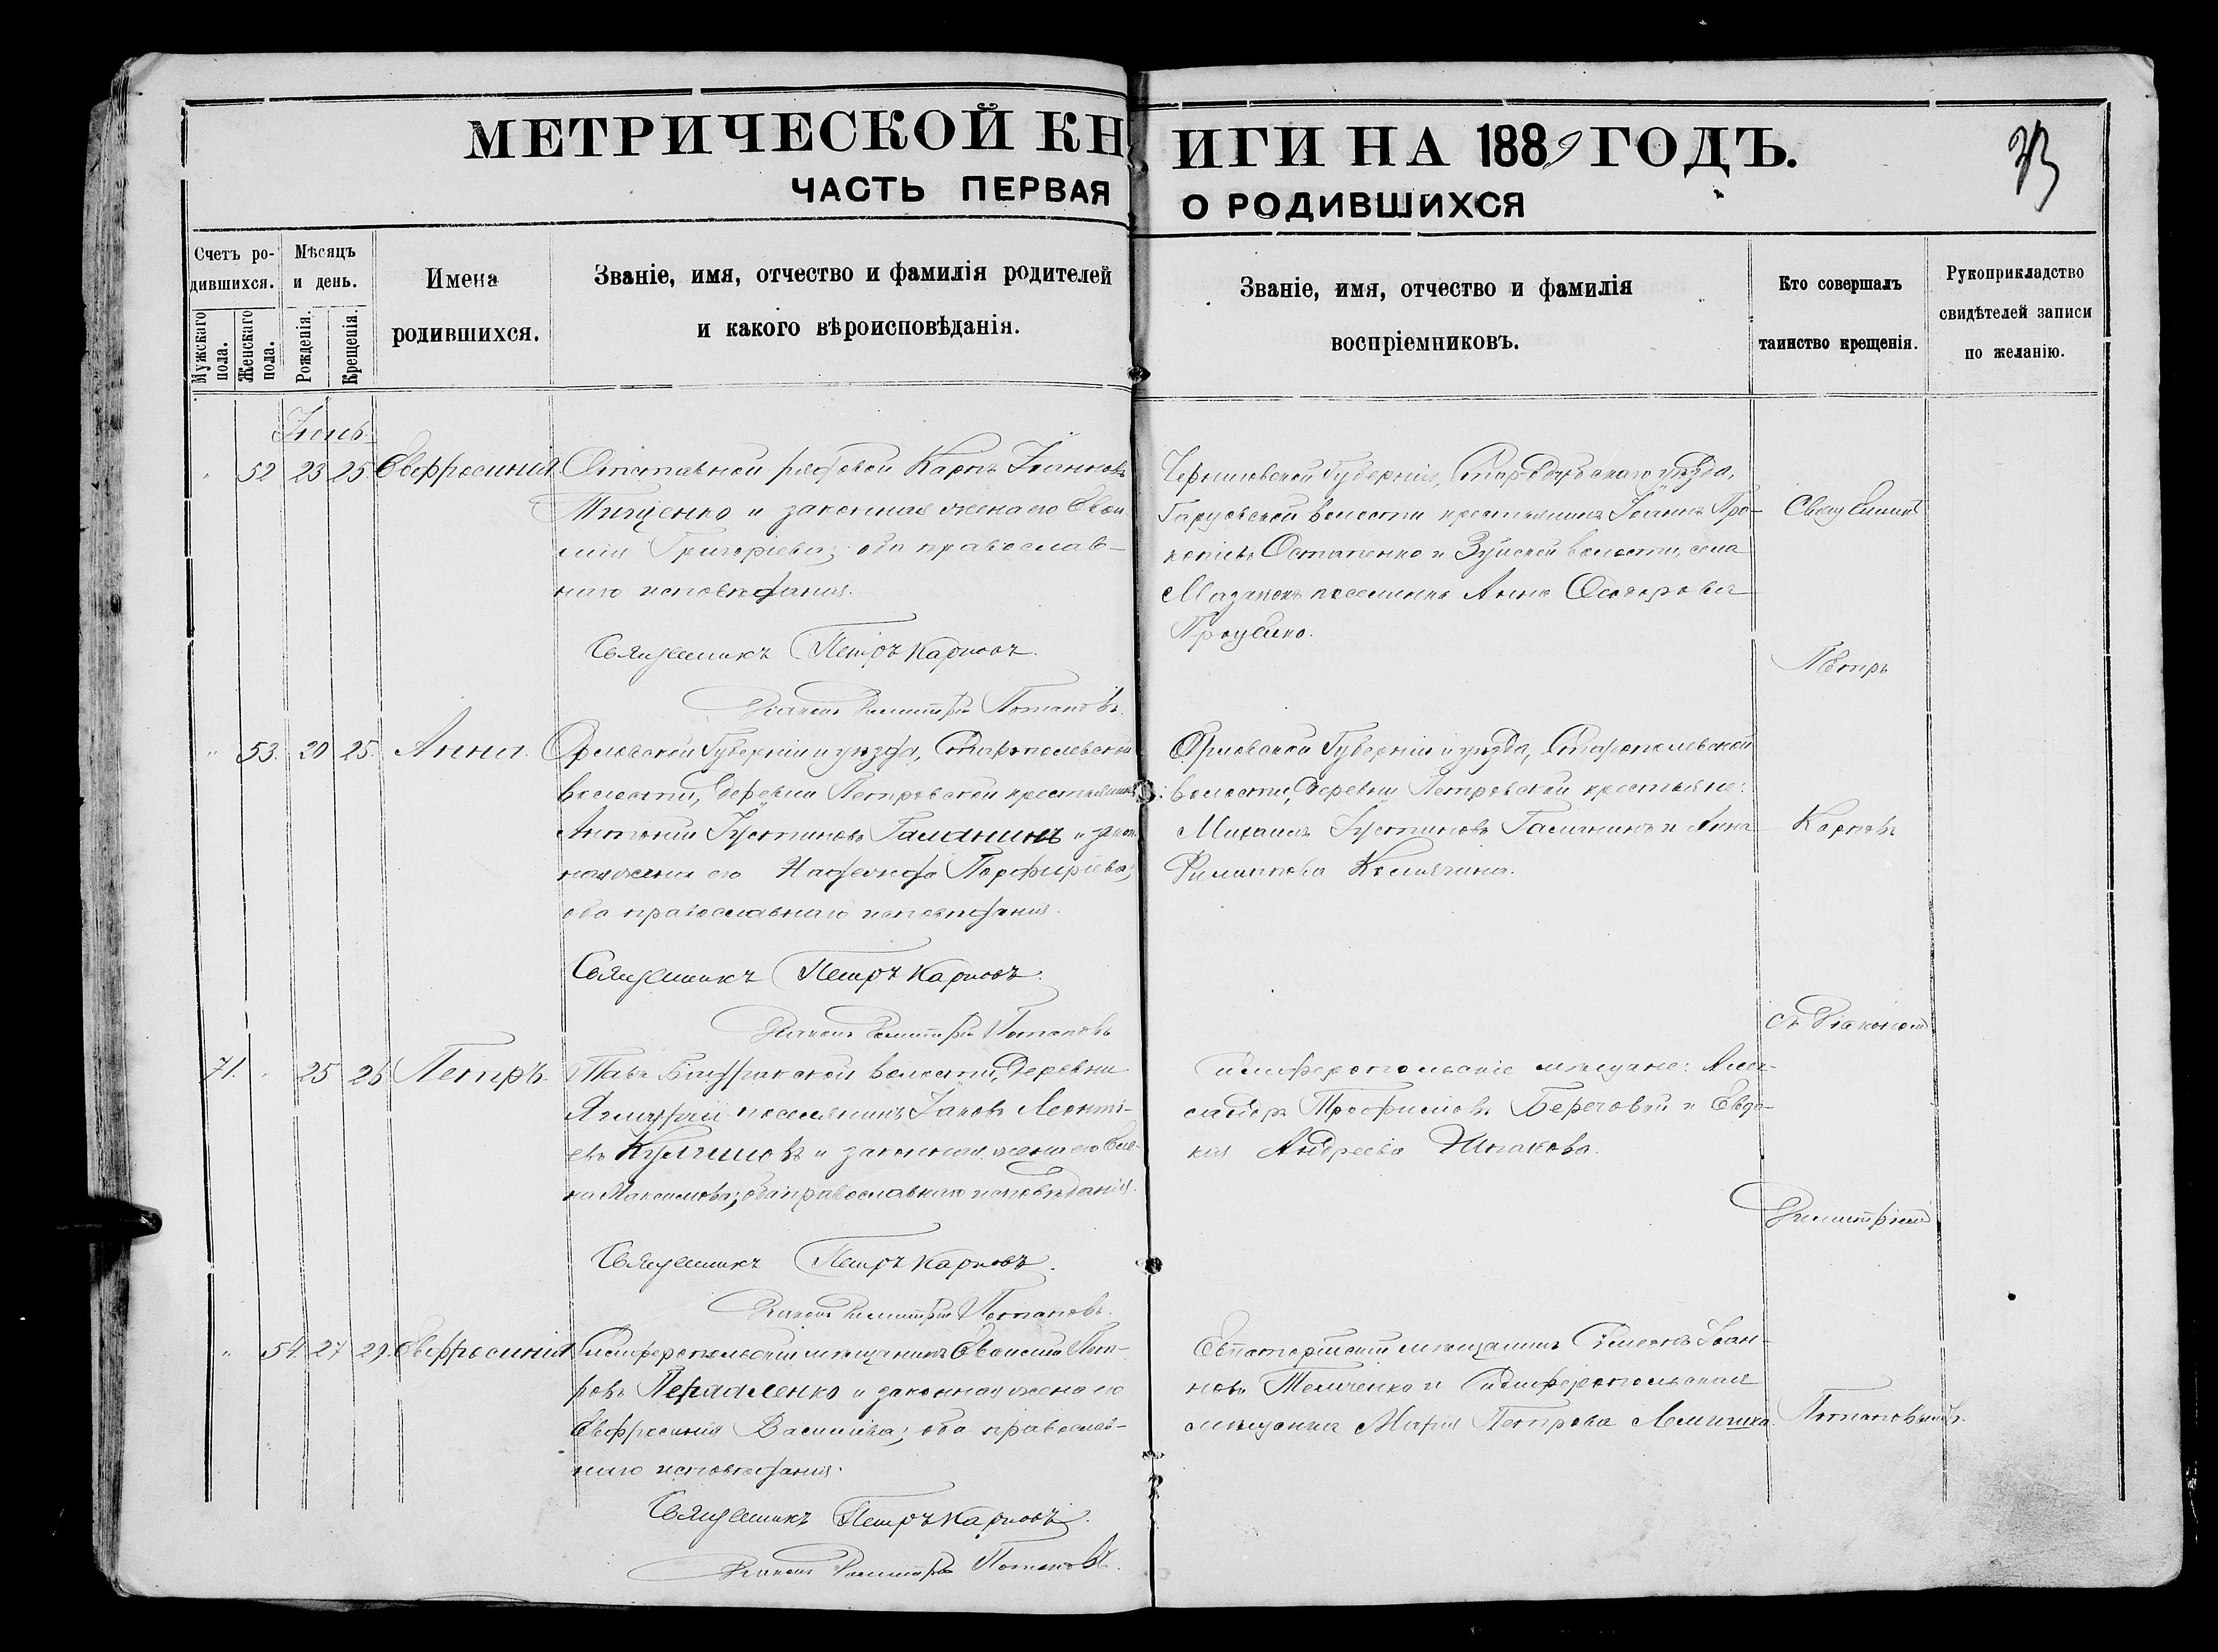 МЕТРИЧЕСКОЙ КНИГИ НА 1889 ГОДЪ.
33
ЧАСТЬ ПЕРВАЯ О РОДИВШИХСЯ
Счетъ ро-
дившихся.
Мужскаго
пола.
Женскаго
пола.
Мѣсяцъ
и день.
Рожденія.
Крещенія.
Имена
родившихся.
Званіе, имя, отчество и фамилія родителей
и какого вѣроисповѣданія.
Званіе, имя, отчество и фамилія
воспріемниковъ.
Кто совершалъ
таинство крещенія.
Рукоприкладство
свидѣтелей записи
по желанію.
Іюнь.
" 52 23 25 Евфросинія
Отставной рядовой Карпъ Іоанновъ
Тищенко и законная жена его
Григоріева; оба православ-
наго исповѣданія.
Священникъ Петръ Карповъ.
Діаконъ Димитрій Потаповъ.
Черниговской Губерніи, уѣзда,
волости крестьянинъ Іоаннъ Про-
копіевъ Остапенко и Зуйской волости, села
Мазанокъ поселянка Анна
" 53. 20 25. Анна.
Орловской Губерніи и уѣзда,
волости, деревни Петровской крестьянинъ
Антоній Іустиновъ Галанинъ и закон-
ная жена его Порфиріева;
оба православнаго исповѣданія.
Священникъ Петръ Карповъ.
Діаконъ Димитрій Потаповъ
Орловской Губерніи и уѣзда,
волости, деревни Петровской крестьяне:
Михаилъ Іустиновъ Галанинъ и Анна
Филиппова
71. " 25 26 Петръ.
волости, деревни
поселянинъ Іаковъ Леонті-
евъ и законная жена его Еле-
на Максимова; оба православнаго исповѣданія.
Священникъ Петръ Карповъ.
Діаконъ Димитрій Потаповъ.
Симферопольскіе мѣщане: Алек-
сандръ Трофимовъ Береговой и Евдо-
кія Андреева
" 54. 27 29. Евфросинія
Симферопольскій мѣщанинъ Пет-
ровъ и законная жена его
Евфросинія Василіева; оба православ-
наго исповѣданія.
Священникъ Петръ Карповъ.
Діаконъ Димитрій Потаповъ.
Евпаторійскій мѣщанинъ Симеонъ Іоан-
новъ и Симферопольская
мѣщанка Марія Петрова
Священникъ
Петръ
Карповъ
съ Діакономъ
Димитріемъ
Потаповымъ.